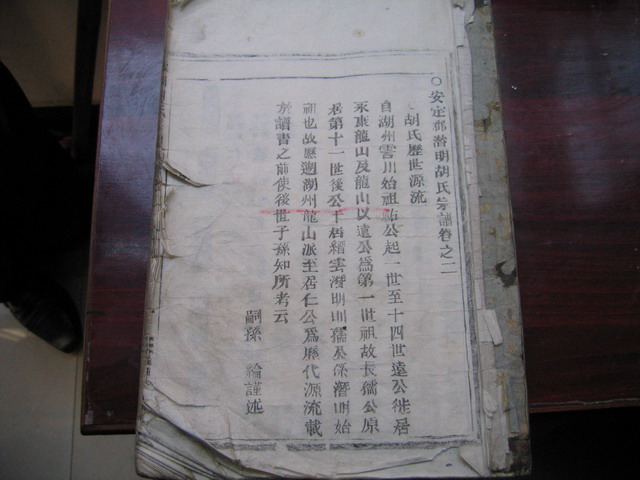 安定郡潛明胡氏宗譜卷之二
胡氏歷世源流
自湖州雲川始祖祐公起一世至十四世遠公徙居
永東龍山及龍山以遠公為第一世祖故長孺公原
居第十一世後公卜居縉雲潛明圳孺公係潛明始
祖也故歷遡湖州龍山派至居仁公為歷代源流載
於讀書之前使後世子孫知所考云
嗣孫 綸謹述